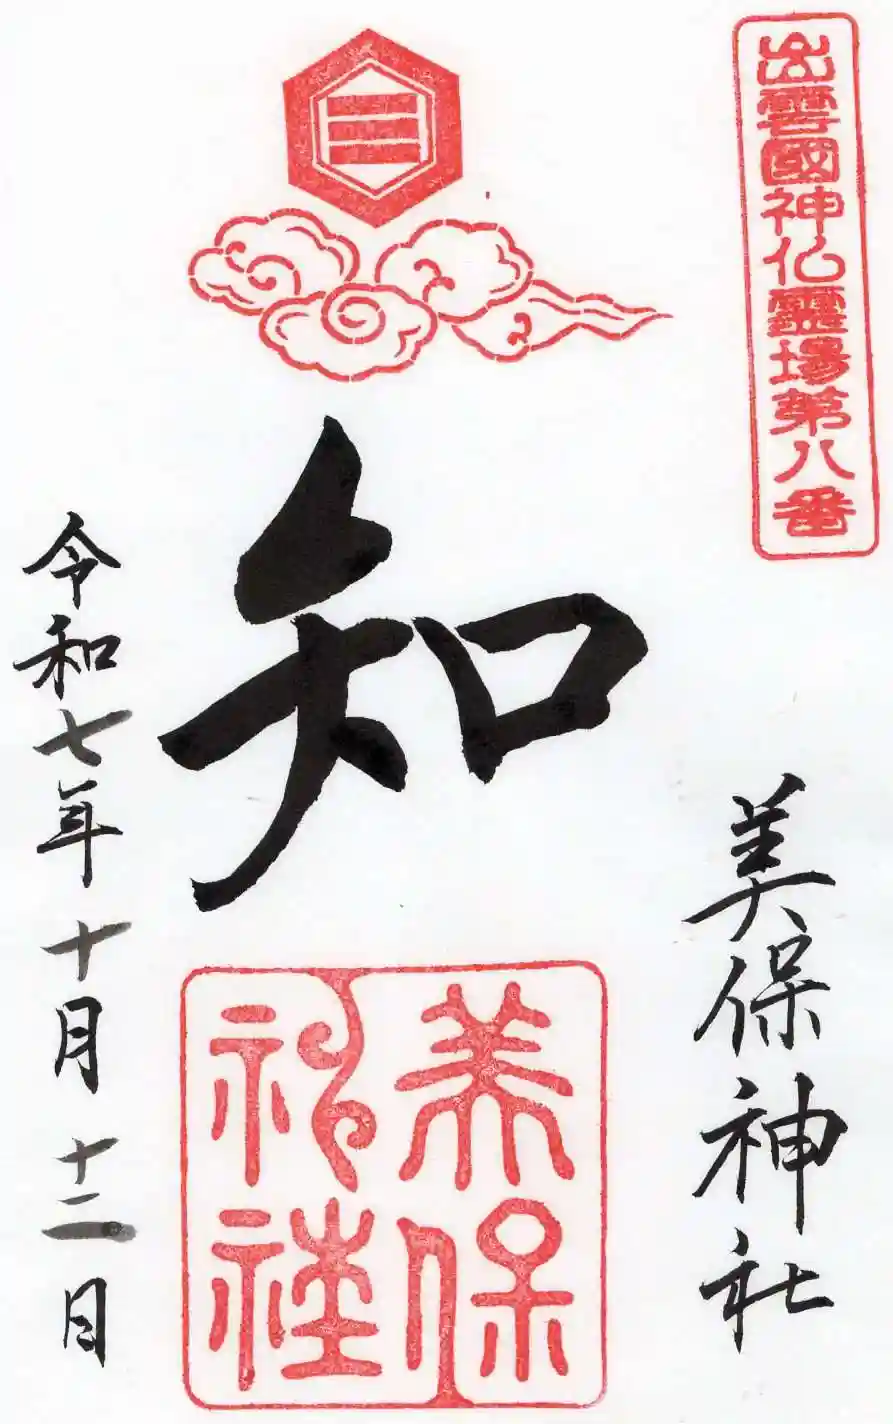 出雲國神仏霊場第八番
美保神社
三
知
美保
神社
令和七年十月十二日